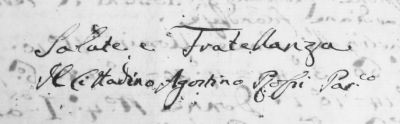 Salute e Fratellanza
Il Cittadino Agostino Rossi Par.co